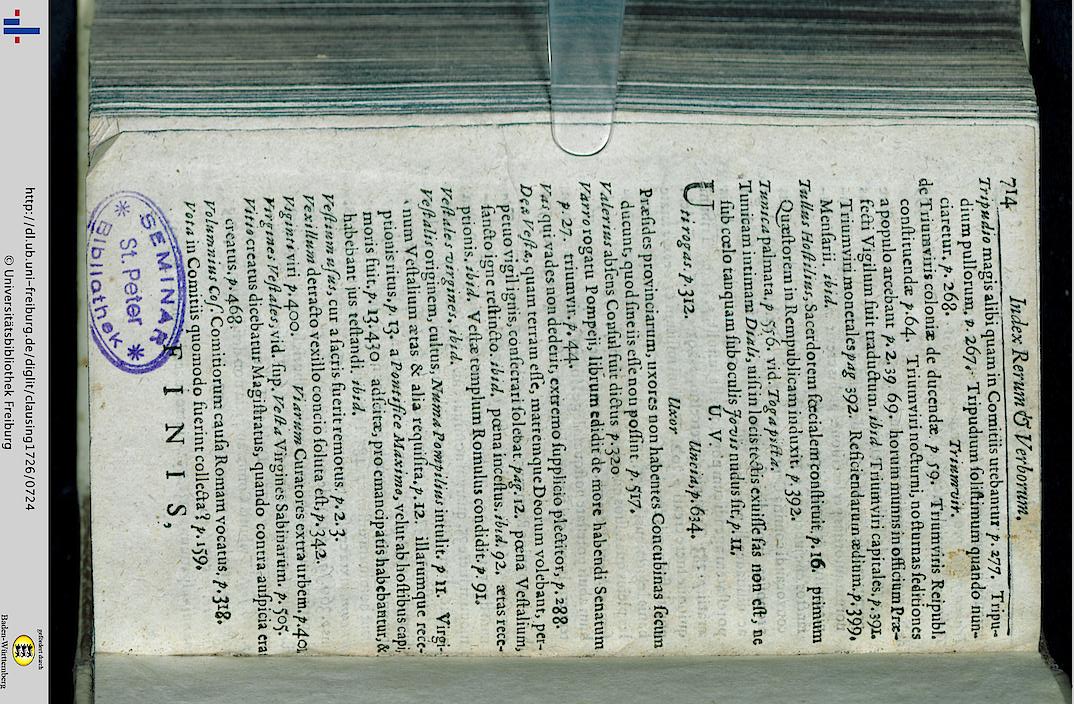 714 Index Rerum & Verborum.
Tripudio magis alibi quam in Comitiis utebantur p. 277. Tripu-
dium pullorum, p. 267. Tripudum solistimum quando nun-
ciaretur, p. 268. Triumvir.
de Triumviris coloniæ de ducendæ p 59. Triumviris Reipubl.
constituendæ p. 64. Triumviri nocturni, nocturnas seditiones
a populo arcebant p 2. 39 69. horum munus in officium Præ-
fecti Vigilum fuit traductum. ibid Triumviri capitales, p. 391.
Triumviri monetales pag 392. Reficiendarum ædium. p. 399.
Mensarii. ibid.
Tullus Hostilius, Sacerdotem fœcialem constituit, p. 16. primum
Quæstorem in Rempublicam induxit, p. 392.
Tunica palmata, p 556. vid. Toga picta.
Tunicam intimam Dialis, nisi in locis tectis exuisse fas non est, ne
sub cœlo tanquam sub oculis Jovis nudus sit, p. 11.
U. V.
Uti rogas p. 312. Uncia, p. 634.
Uxor
Præsides provinciarum, uxores non habentes Concubinas secum
ducunt, quod sine iis esse non possint p. 517.
Valerius absens Consul fuit dictus p. 320.
Varro rogatu Pompeii, librum edidit de more habendi Senatum
p. 27. triumvir, p. 44.
Vas qui vades non dederit, extremo supplicio plectitor, p. 288.
Dea Vesta, quam terram esse, matremque Deorum volebant, per-
petuo vigil ignis, consecrari solebat, pag. 12. pœna Vestalium,
sancto igne restincto. ibid. pœna incestus, ibid. 92. ætas rece-
ptionis, ibid. Vestæ templum Romulus condidit, p. 91.
Vestales virgines, ibid.
Vestalis originem, cultus, Numa Pompilius intulit, p 11. Virgi-
num Vestalium ætas & alia requisita, p. 12. illarumque rece-
ptionis ritus, p. 13. a Pontifice Maximo, velut ab hostibus capi
moris fuit, p. 13. 430 adscitæ pro emancipatis habebantur, &
habebant jus testandi, ibid.
Vestium usus, cur a sacris fuerit remotus, p. 2. 3.
Vexillum detracto vexillo concio soluta est, p. 342.
Viginti viri p. 400. Viarum Curatores extra urbem, p. 401
Virgines Vestales, vid. sup. Vesta Virgines Sabinarum, p. 505.
Vitio creatus dicebatur Magistratus, quando contra auspicia erat
creatus, p. 468.
Volumnius Cos. Comitiorum causa Romam vocatus, p. 318.
Vota in Comitiis quomodo fuerint collecta? p. 159.
FINIS,
SEMINAR
St. Peter
Bibliothek
http://dl.ub.uni-freiburg.de/diglit/clausing1726/0724
© Universitätsbibliothek Freiburg
gefördert durch
Baden-Württemberg